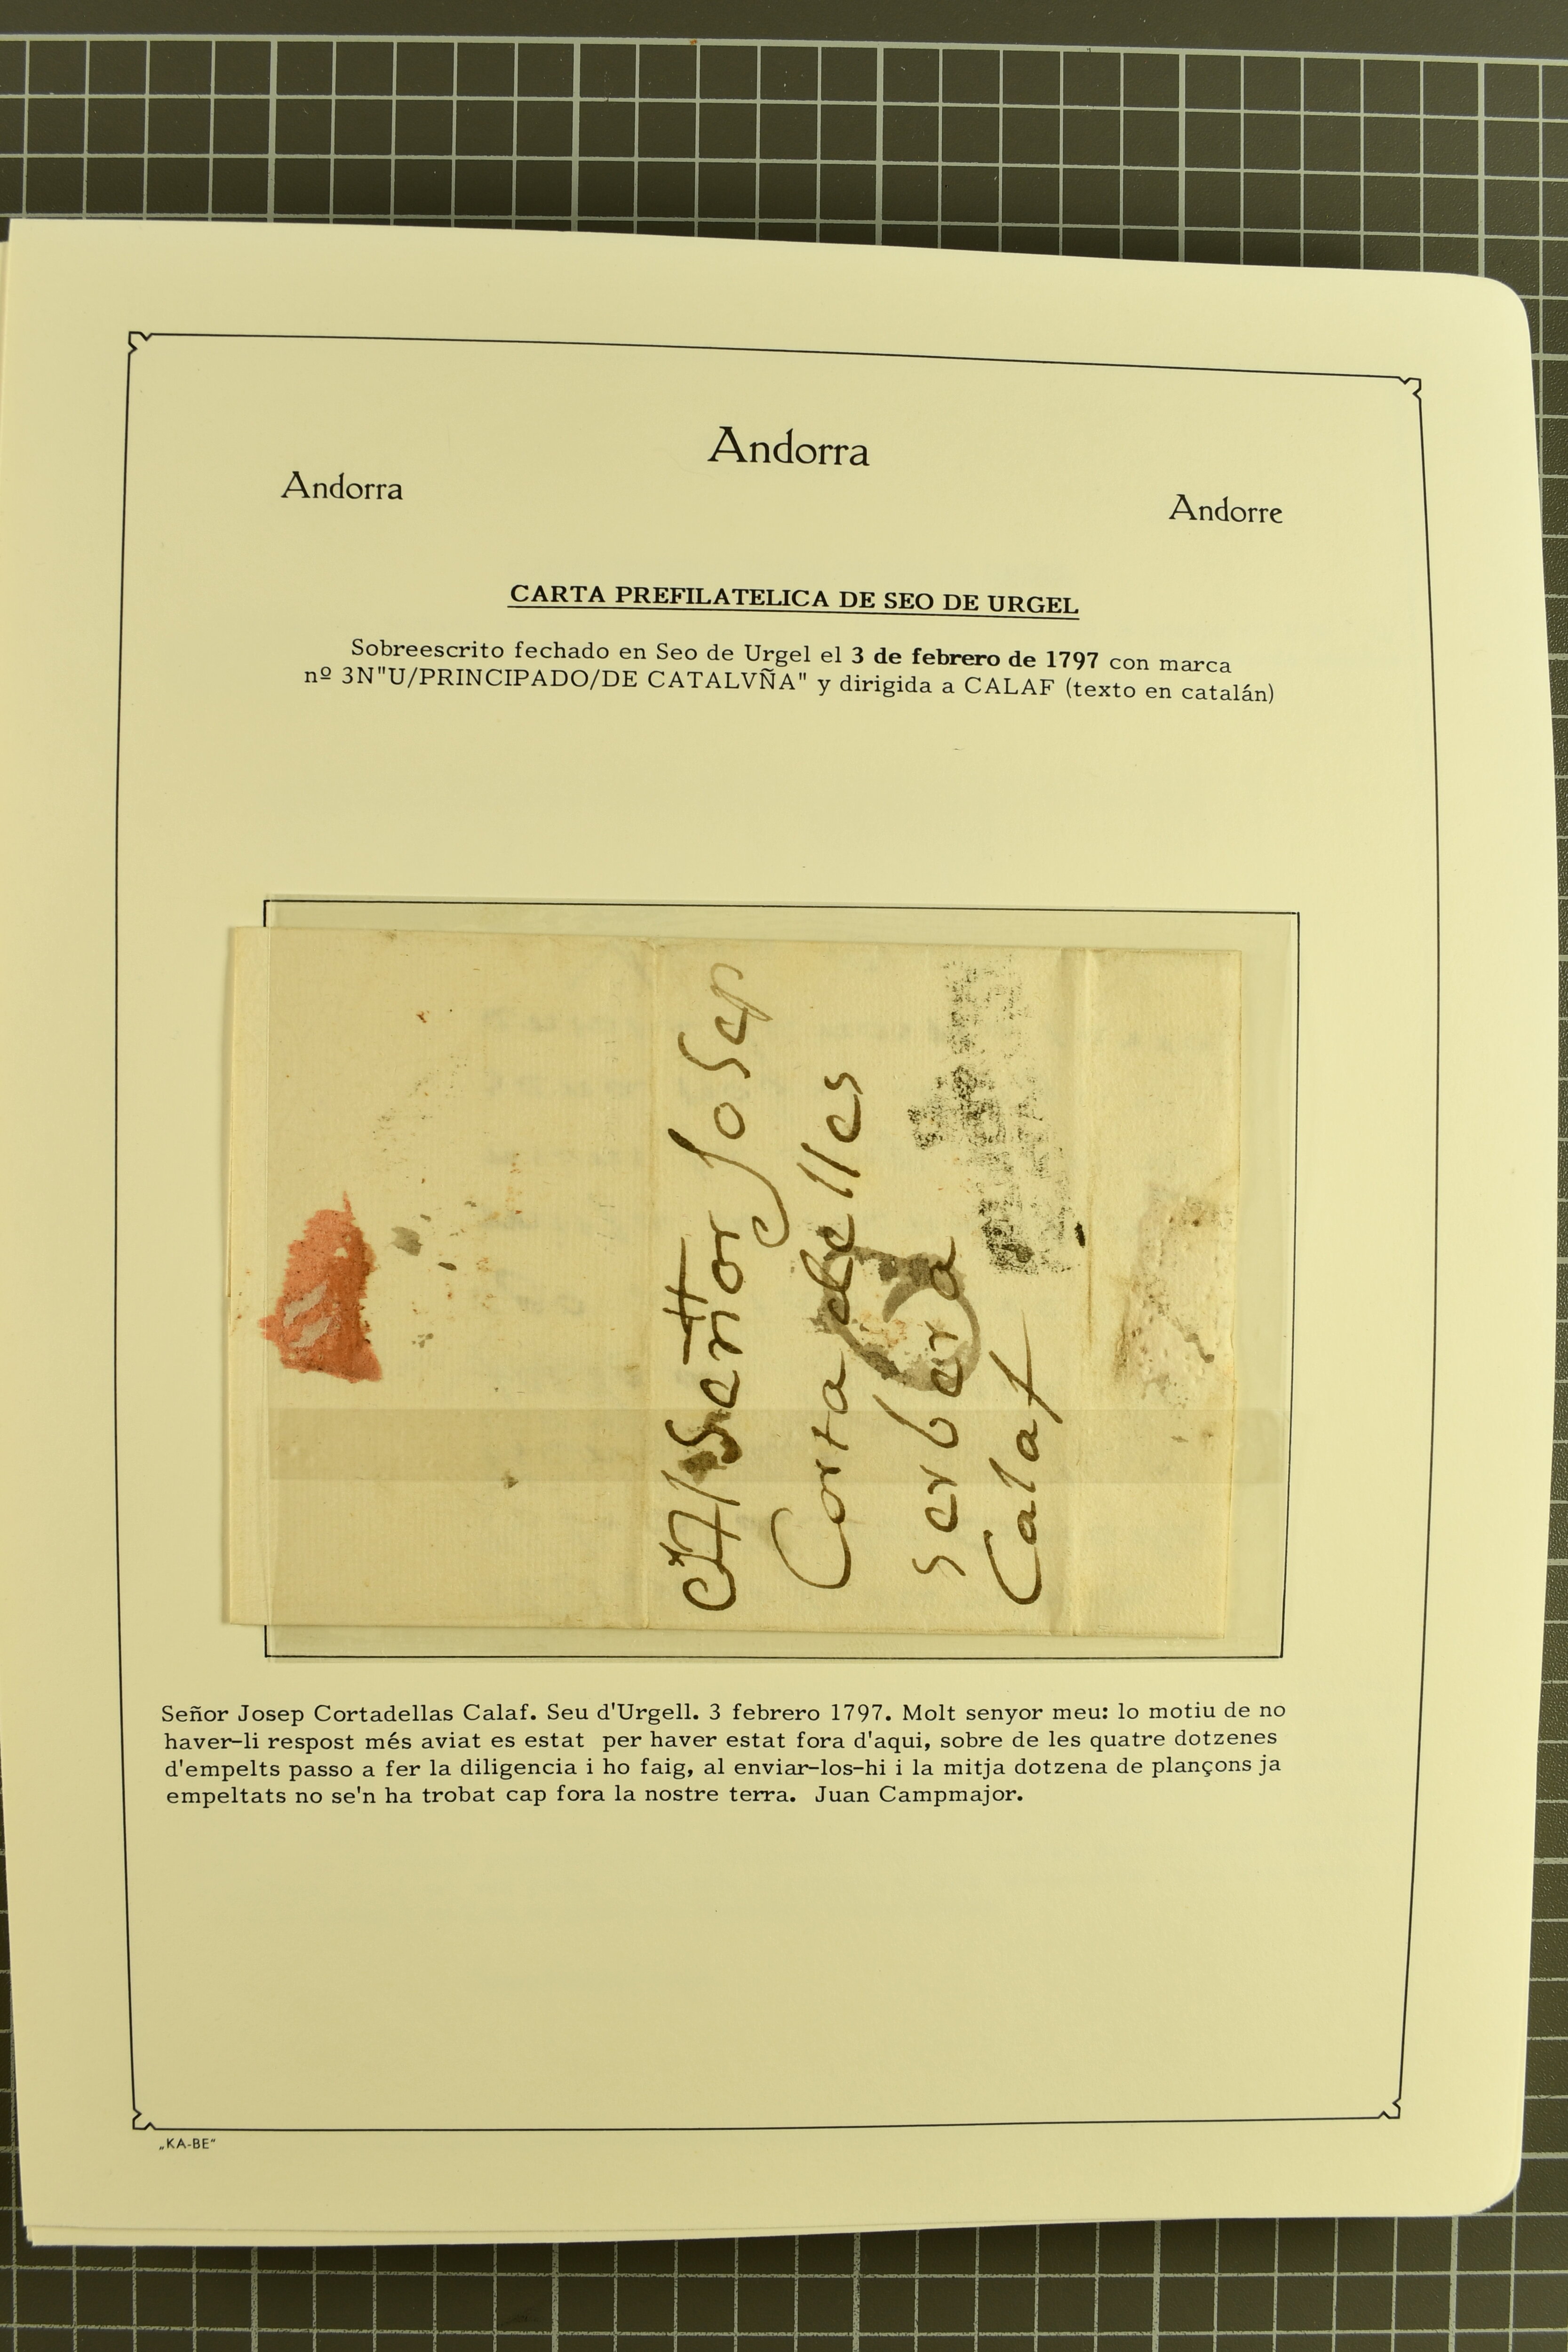 Andorra
Andorra
Andorre
CARTA PREFILATELICA DE SEO DE URGEL
Sobreescrito fechado en Seo de Urgel el 3 de febrero de 1797 con marca
nº 3N"U/PRINCIPADO/DE CATALVÑA" y dirigida a CALAF (texto en catalán)
Señor Josep
Corta delles
serbera
Calaf
Señor Josep Cortadellas Calaf. Seu d'Urgell. 3 febrero 1797. Molt senyor meu: lo motiu de no
haver-li respost més aviat es estat per haver estat fora d'aqui, sobre de les quatre dotzenes
d'empelts passo a fer la diligencia i ho faig, al enviar-los-hi i la mitja dotzena de plançons ja
empeltats no se'n ha trobat cap fora la nostre terra. Juan Campmajor.
„KA-BE"